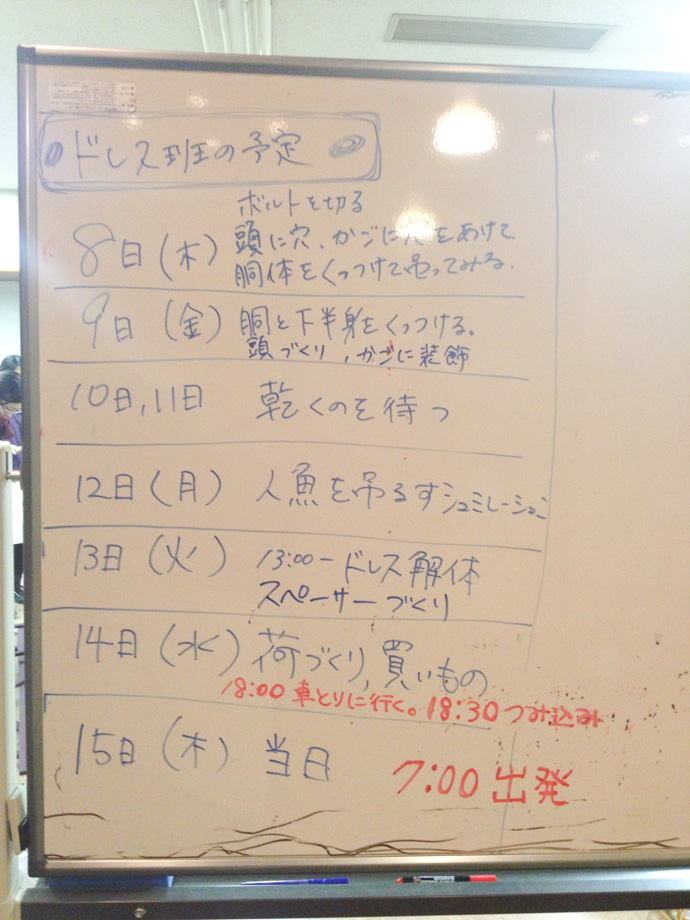 ドレス班の予定
ボルトを切る
8日(木) 頭に穴、かごに穴をあけて
胴体をくっつけて吊ってみる。
9日(金) 胴と下半身をくっつける。
頭づくり、かごに装飾
10日,11日 乾くのを待つ
12日(月) 人魚を吊るすシュミレーション
13日(火) 13:00-ドレス解体
スペーサーづくり
14日(水) 荷づくり,買いもの
18:00 車とりに行く。18:30 つみ込み
15日(木) 当日 7:00 出発